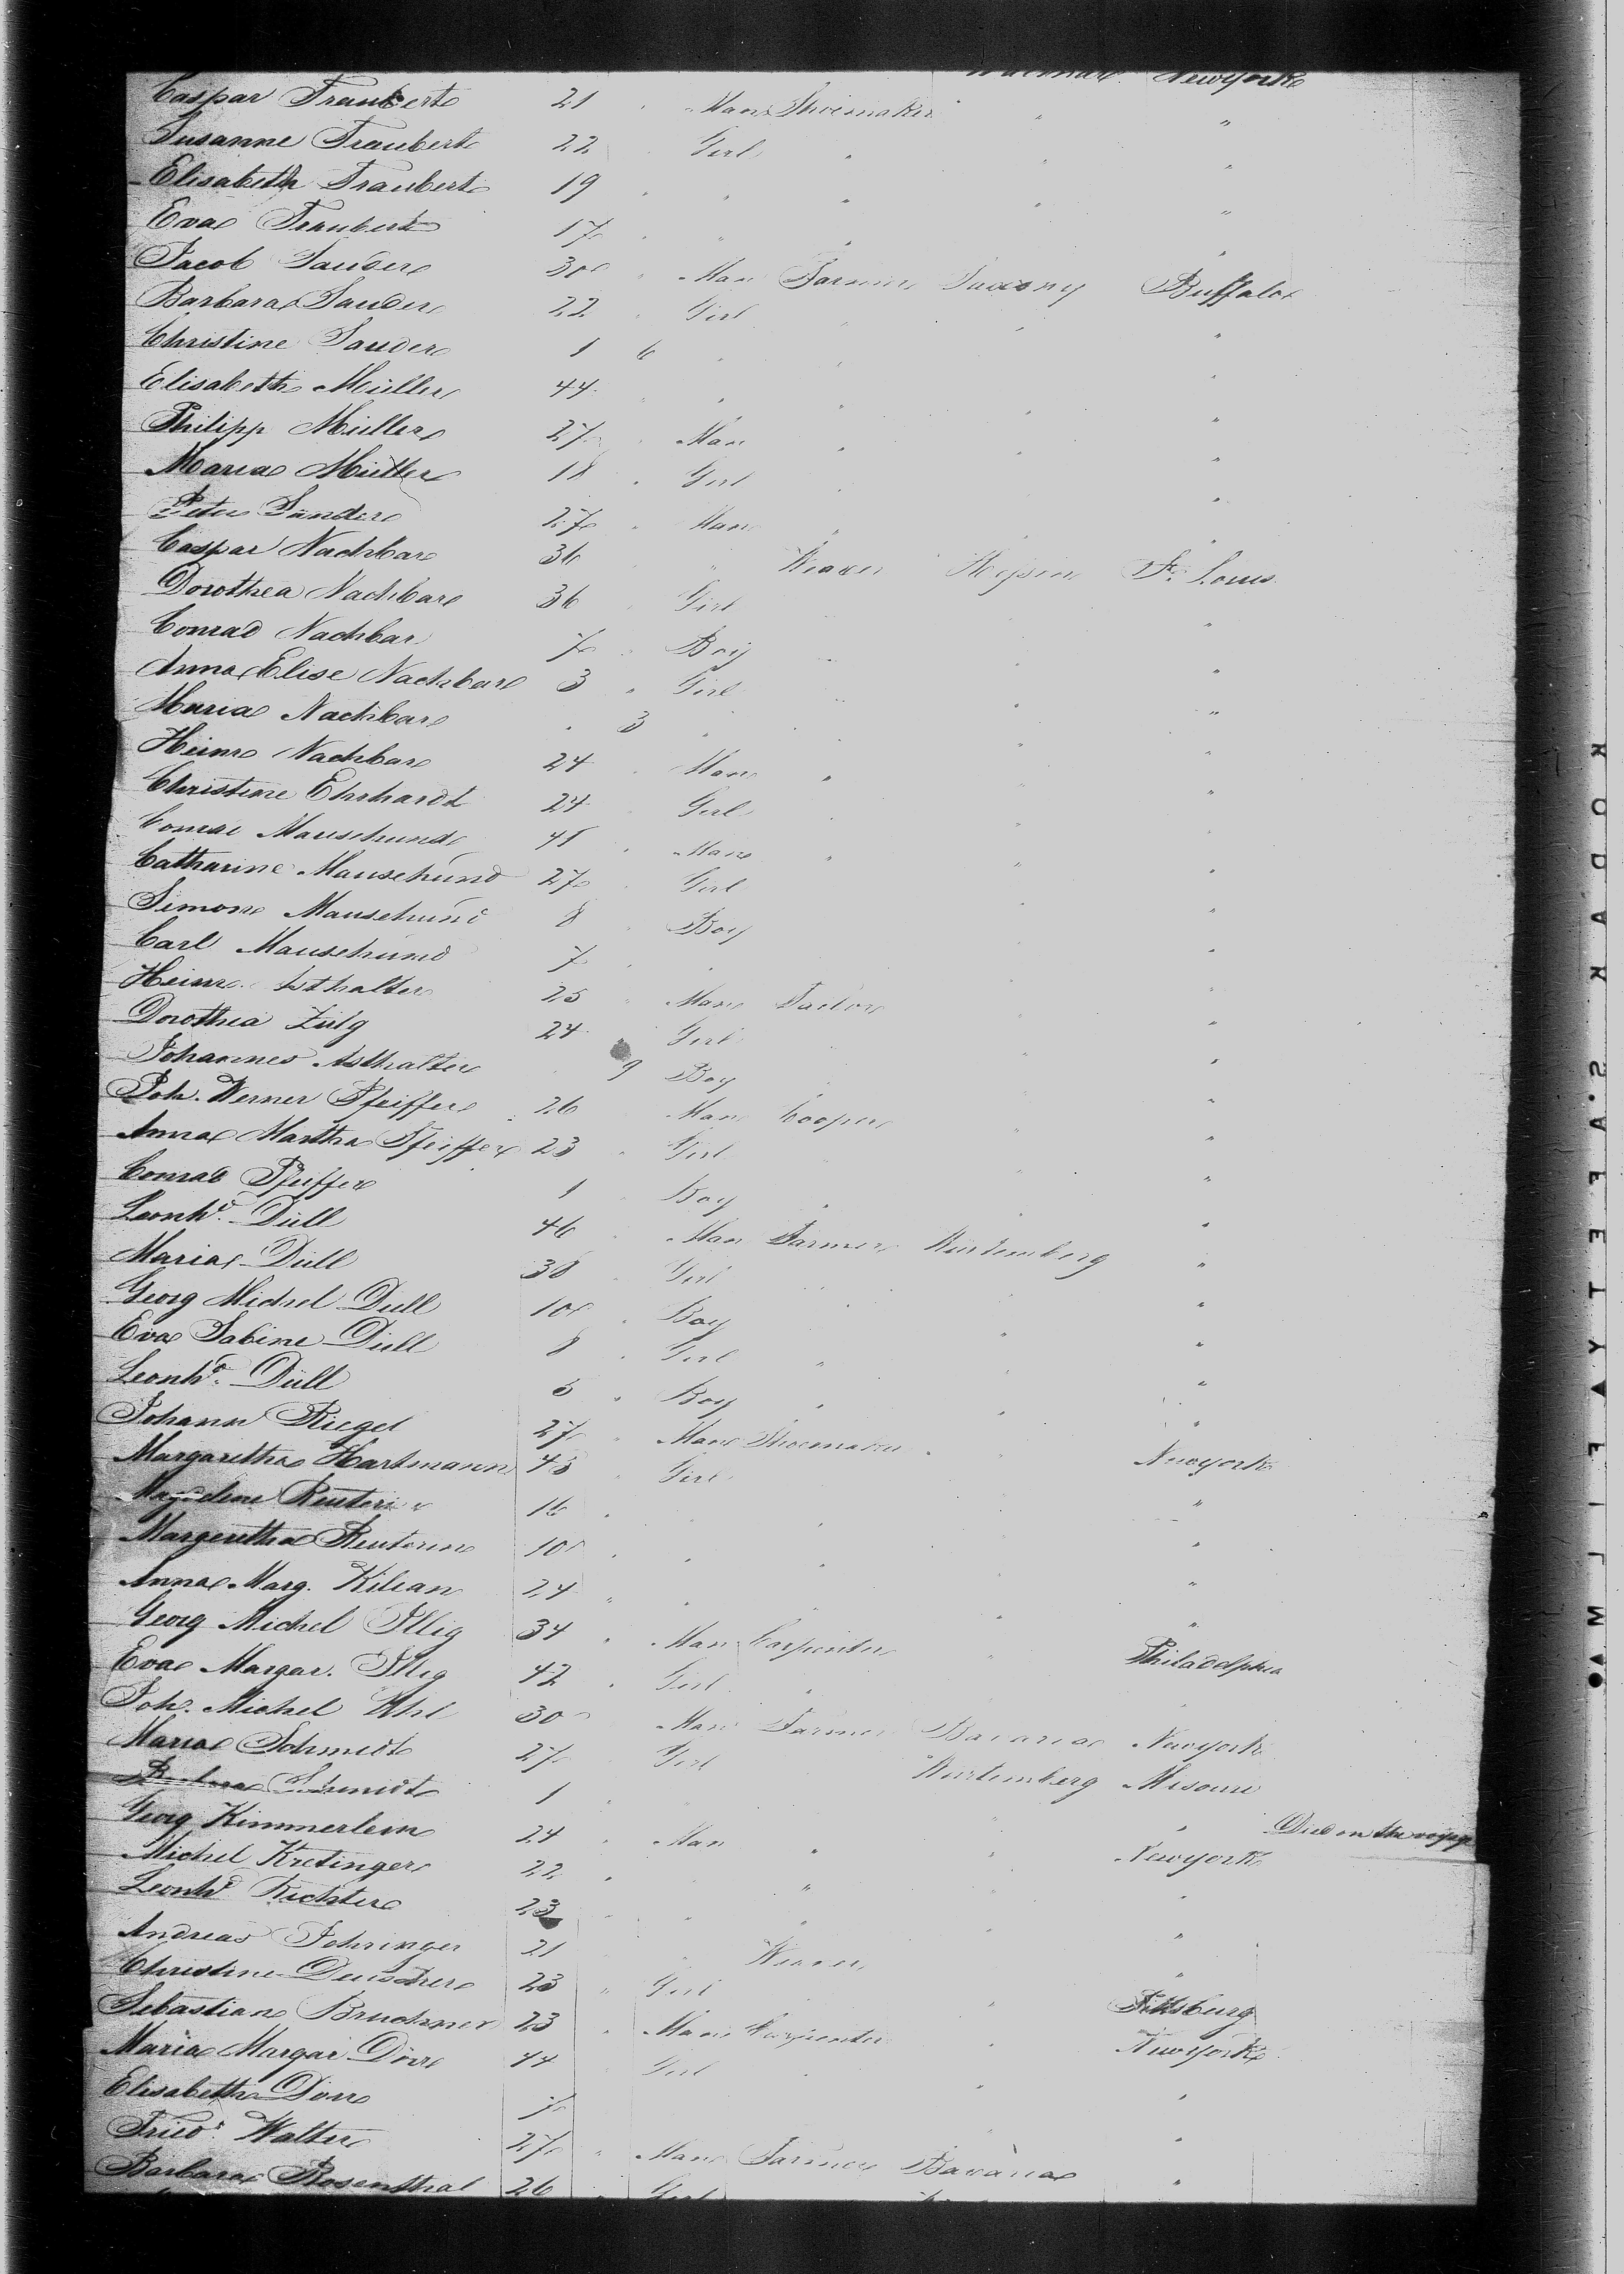 Newyork
Caspar Traubert 21 " Man Shoemaker " "
Susanne Traubert 22 " Girl " " "
Elisabeth Traubert 19 " " " " "
Eva Traubert 17 " " " "
Jacob Sauder 30 " Man Farmer Saxony Buffalo
Barbara Sauder 22 " Girl " " "
Christine Sauder 1 6 " " "
Elisabeth Müller 44 " " " " "
Philipp Müller 27 " Man " " "
Maria Müller 18 " Girl "
Peter Sander 27 " Man " "
Caspar Nachbar 36 " " Weaver Hessen St. Louis
Dorothea Nachbar 36 " Girl "
Conrad Nachbar 7 " Boy " "
Anna Elise Nachbar 3 " Girl " "
Maria Nachbar " 3 " " "
Heinr. Nachbar 24 " Man " "
Christine Ehrhardt 24 " Girl " "
Conrad Mausehund 41 " Man " " "
Catharine Mausehund 27 " Girl " "
Simon Mausehund 8 " Boy " "
Carl Mausehund 7 " " "
Heinr. Asthalter 25 " Man "
Dorothea Zulg 24 Girl " "
Johannes Asthalter " 9 Boy " "
Joh. Werner Pfeiffer 26 Man Cooper " "
Anna Martha Pfeiffer 23 " Girl "
Conrad Pfeiffer 1 " Boy " "
Leonhd. Düll 46 " Man Farmer Würtemberg "
Maria Düll 38 " Girl "
Georg Michel Düll 10 " Boy " "
Eva Sabine Düll 8 " Girl " "
Leonhd. Düll 5 " Boy " "
Johann Riegel 27 " Man Shoemaker " Newyork
Margaretha Hartmann 43 " Girl "
Magdlene Reuter 16 " " " "
Margeretha Reuterin 10 " " " "
Anna Marg. Kilian 24 " " " "
Georg Michel Illig 34 " Man Carpenter " Philadelphia
Eva Margar. Illig 42 " Girl " "
Joh. Michel Uhl 30 " Man Farmer Bavaria Newyork
Maria Schmidt 27 " Girl Würtemberg Misouri
Barbara Schmidt 1 " " " " Died on the voyage
Georg Kimmerlein 24 " Man " " Newyork
Michel Kretinger 22 " " " "
Leonhd Richter 23 " " " "
Andreas 21 " " Weaver "
Christine 23 " Girl " Pittsburg
Sebastian Bruckner 23 " Man Carpenter " Newyork
Maria Margar. Dörr 44 Girl " "
Elisabetha Dörr 7 "
Friedr. Walter 27 " Man Farmer Bavaria "
Barbara Rosenthal 26 " Girl